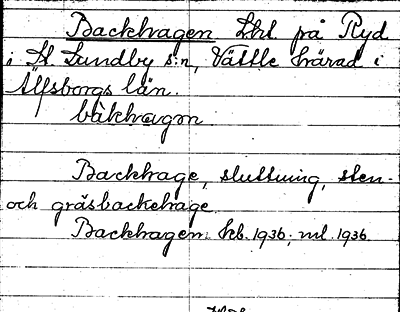 Backhagen Lht på Ryd
i St. Lundby s:n, Vättle härad i
Älfsborgs län.
bakhagɵn
Backhage, sluttning, sten-
och gräsbackehage.
Backhagen: kb. 1936; ml. 1936.